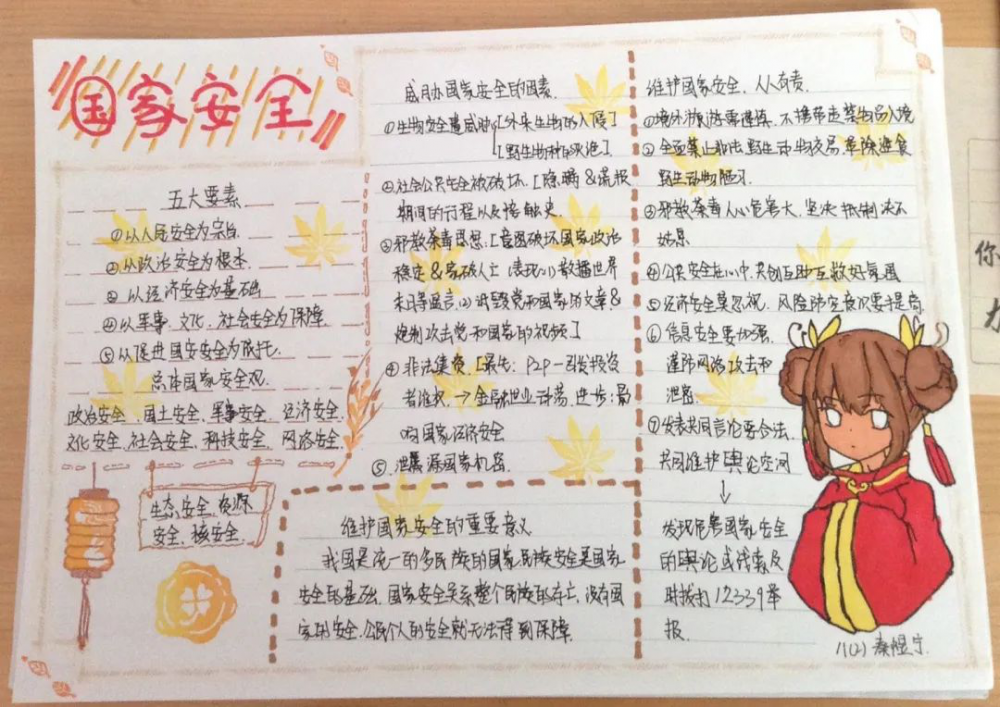 国家安全
五大要素
①以人民安全为宗旨
②以政治安全为根本
③以经济安全为基础
④以军事、文化、社会安全为保障
⑤以促进国安安全为依托.
总体国家安全观.
政治安全、国土安全、军事安全、经济安全、
文化安全、社会安全、科技安全、网络安全、
生态安全、资源
安全、核安全.
威胁国家安全的因素.
①生物安全遭威胁[外来生物的入侵]
[野生物种的灭绝].
②社会公共安全被破坏.[隐瞒&谎报
期间的行程以及接触史.
③邪教荼毒思想:[意图破坏国家政治
稳定&家破人亡(表现:(1)散播世界
末日等谣言.(2)诋毁党和国家的文章&
炮制攻击党和国家的视频]
④非法集资.
P2P
投资
→金融
响国家经济安全
⑤泄露 国家机密.
维护国家安全的重要意义
我国是统一的多民族的国家民族安全是国家
安全的基础.国家安全关系整个民族的存亡,没有国
家的安全.公民个人的安全就无法得到保障.
维护国家安全,人人有责.
①境外游 需谨慎,不携带走禁物品入境
②全面禁止非法野生动物交易.革除滥食
野生动物陋习.
③邪教荼毒人心危害大,坚决抵制决不
姑息
④公共安全在心中,共创互助互救好氛围
⑤经济安全莫忽视,风险防 意识要提高
⑥信息安全要加强.
谨防网络攻击和
泄密.
⑦发表共同言论要合法.
共同维护舆论空间
↓
发现危害国家安全
的舆论或线索及
时拨打12339举
报.
八(2) 秦 宁
你